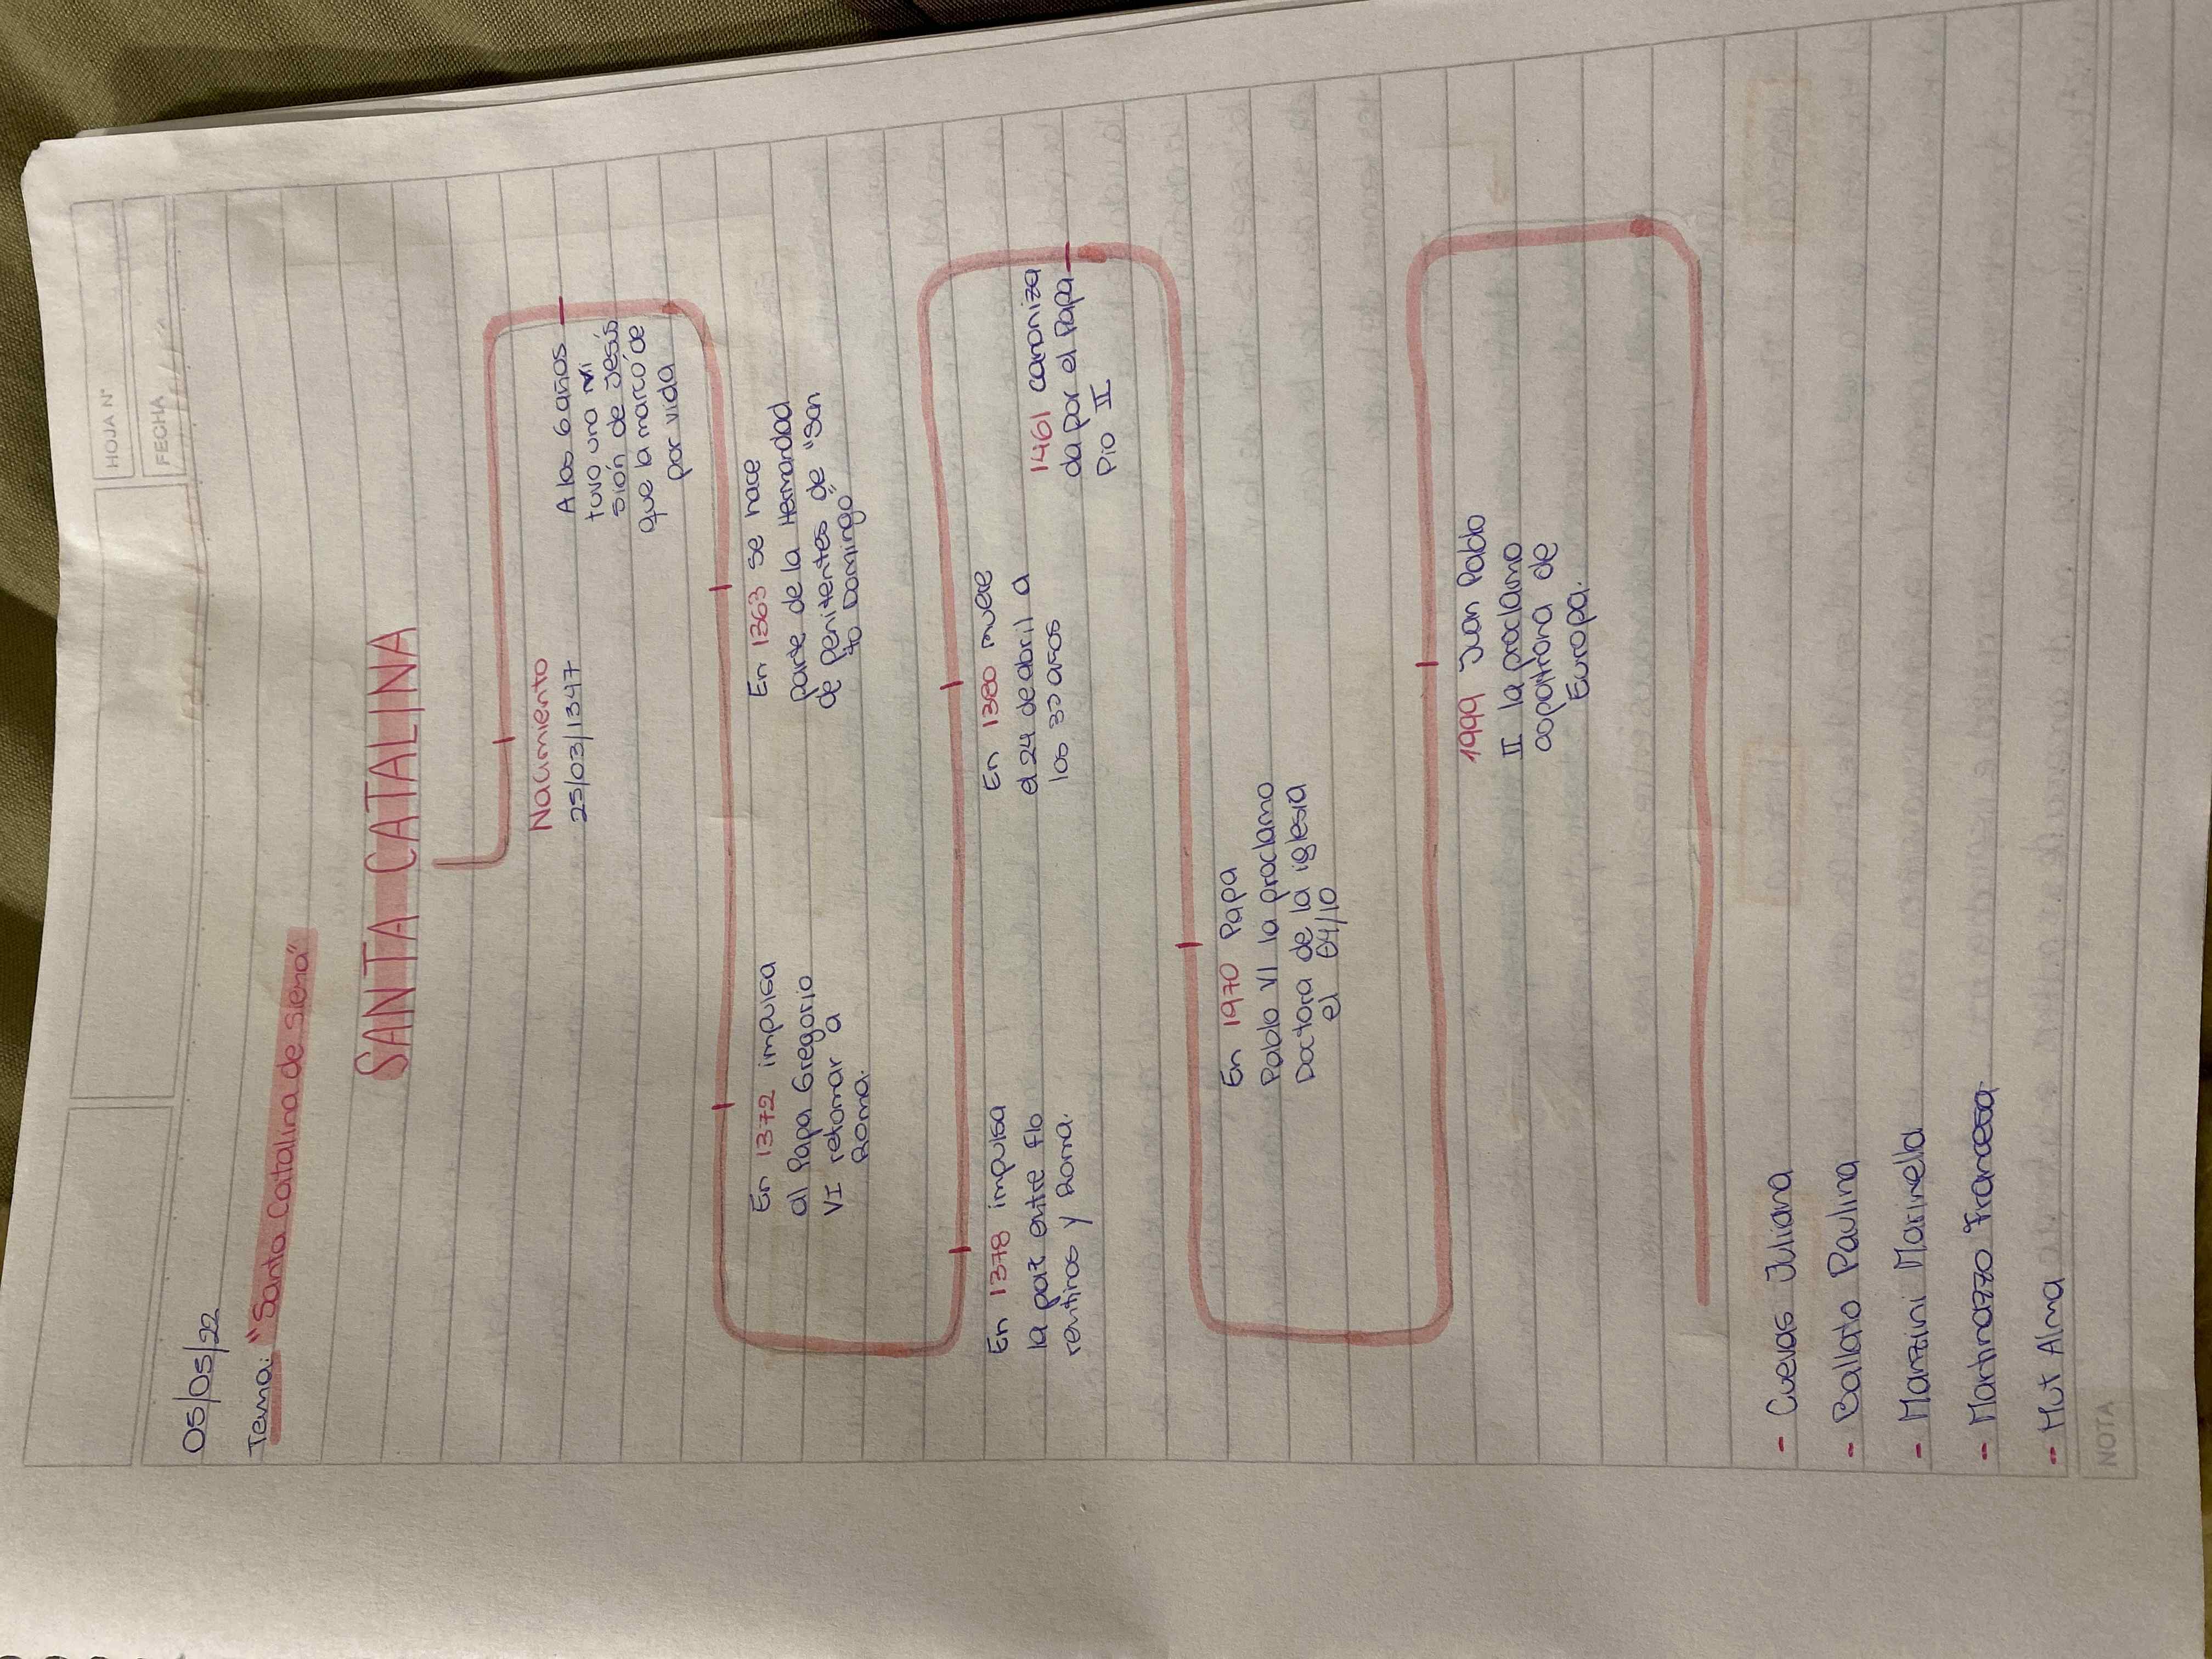 HOJA N°
FECHA
05/05/22
Tema: "Santa Catalina de Siena"
SANTA CATALINA
Nacimiento
25/03/1347
A los 6 años
tuvo una vi
sión de Jesús
que la marcó de
por vida
En 1363 se hace
parte de la Hermandad
de penitentes de "San
to Domingo"
En 1372 impulsa
al Papa Gregorio
VI retornar a
Roma.
En 1378 impulsa
la paz entre flo
rentinos y Roma.
En 1380 muere
el 24 de abril a
los 33 años
1461 canoniza
da por el Papa
Pio II
En 1970 Papa
Pablo VI la proclamo
Doctora de la iglesia
el 04/10
1999 Juan Pablo
II la proclamo
copatrona de
Europa.
- Cuevas Juliana
- Ballato Paulina
- Manzini Marinella
- Martinazzo Francesa
- Mut Alma
NOTA